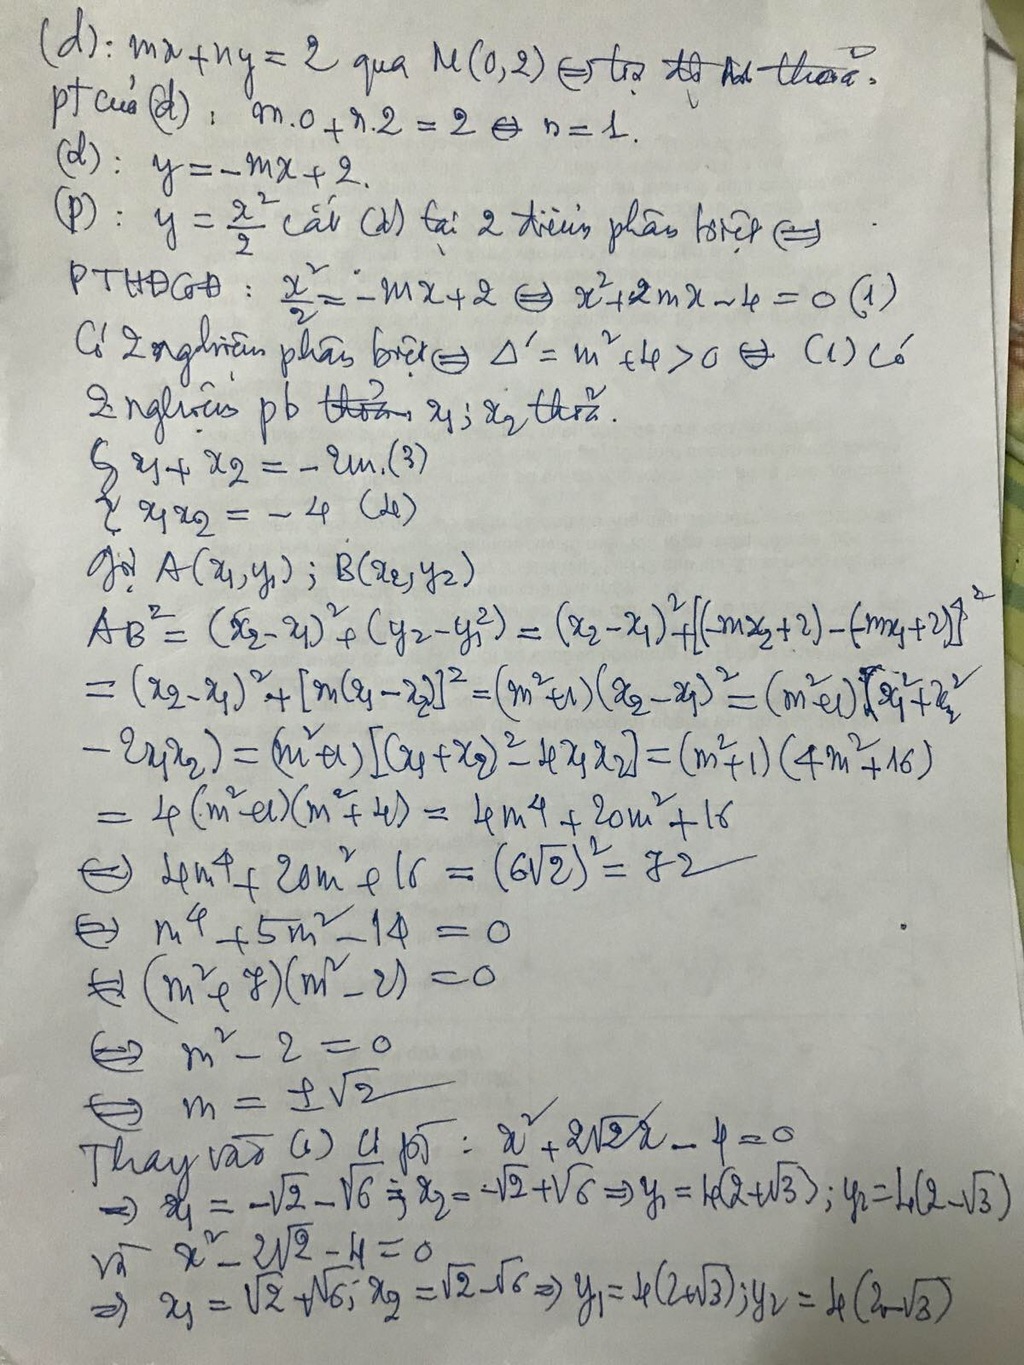 (d): mx + ny = 2 qua M(0,2) ⇔
pt của (d): m.0 + n.2 = 2 ⇔ n = 1.
(d): y = -mx + 2.
(P): y = x²/2 cắt (d) tại 2 điểm phân biệt ⇔
PTHĐGĐ: x²/2 = -mx + 2 ⇔ x² + 2mx - 4 = 0 (1)
Có 2 nghiệm phân biệt ⇔ Δ' = m² + 4 > 0 ⇔ (1) có
2 nghiệm pb x₁; x₂ thoả.
{ x₁ + x₂ = -2m. (3)
{ x₁x₂ = -4 (4)
Gọi A(x₁,y₁); B(x₂,y₂)
AB² = (x₂-x₁)² + (y₂-y₁²) = (x₂-x₁)² + [(-mx₂+2)-(-mx₁+2)]²
= (x₂-x₁)² + [m(x₁-x₂)]² = (m²+1)(x₂-x₁)² = (m²+1)(x₁²+x₂²
-2x₁x₂) = (m²+1)[(x₁+x₂)²-4x₁x₂] = (m²+1)(4m²+16)
= 4(m²+1)(m²+4) = 4m⁴ + 20m² + 16
⇔ 4m⁴ + 20m² + 16 = (6√2)² = 72
⇔ m⁴ + 5m² - 14 = 0
⇔ (m²+7)(m²-2) = 0
⇔ m² - 2 = 0
⇔ m = ±√2
Thay vào (1) : x² + 2√2x - 4 = 0
⇒ x₁ = -√2-√6; x₂ = -√2+√6 ⇒ y₁ = 4(2+√3); y₂ = 4(2-√3)
và x² - 2√2 - 4 = 0
⇒ x₁ = √2+√6; x₂ = √2-√6 ⇒ y₁ = 4(2+√3); y₂ = 4(2-√3)